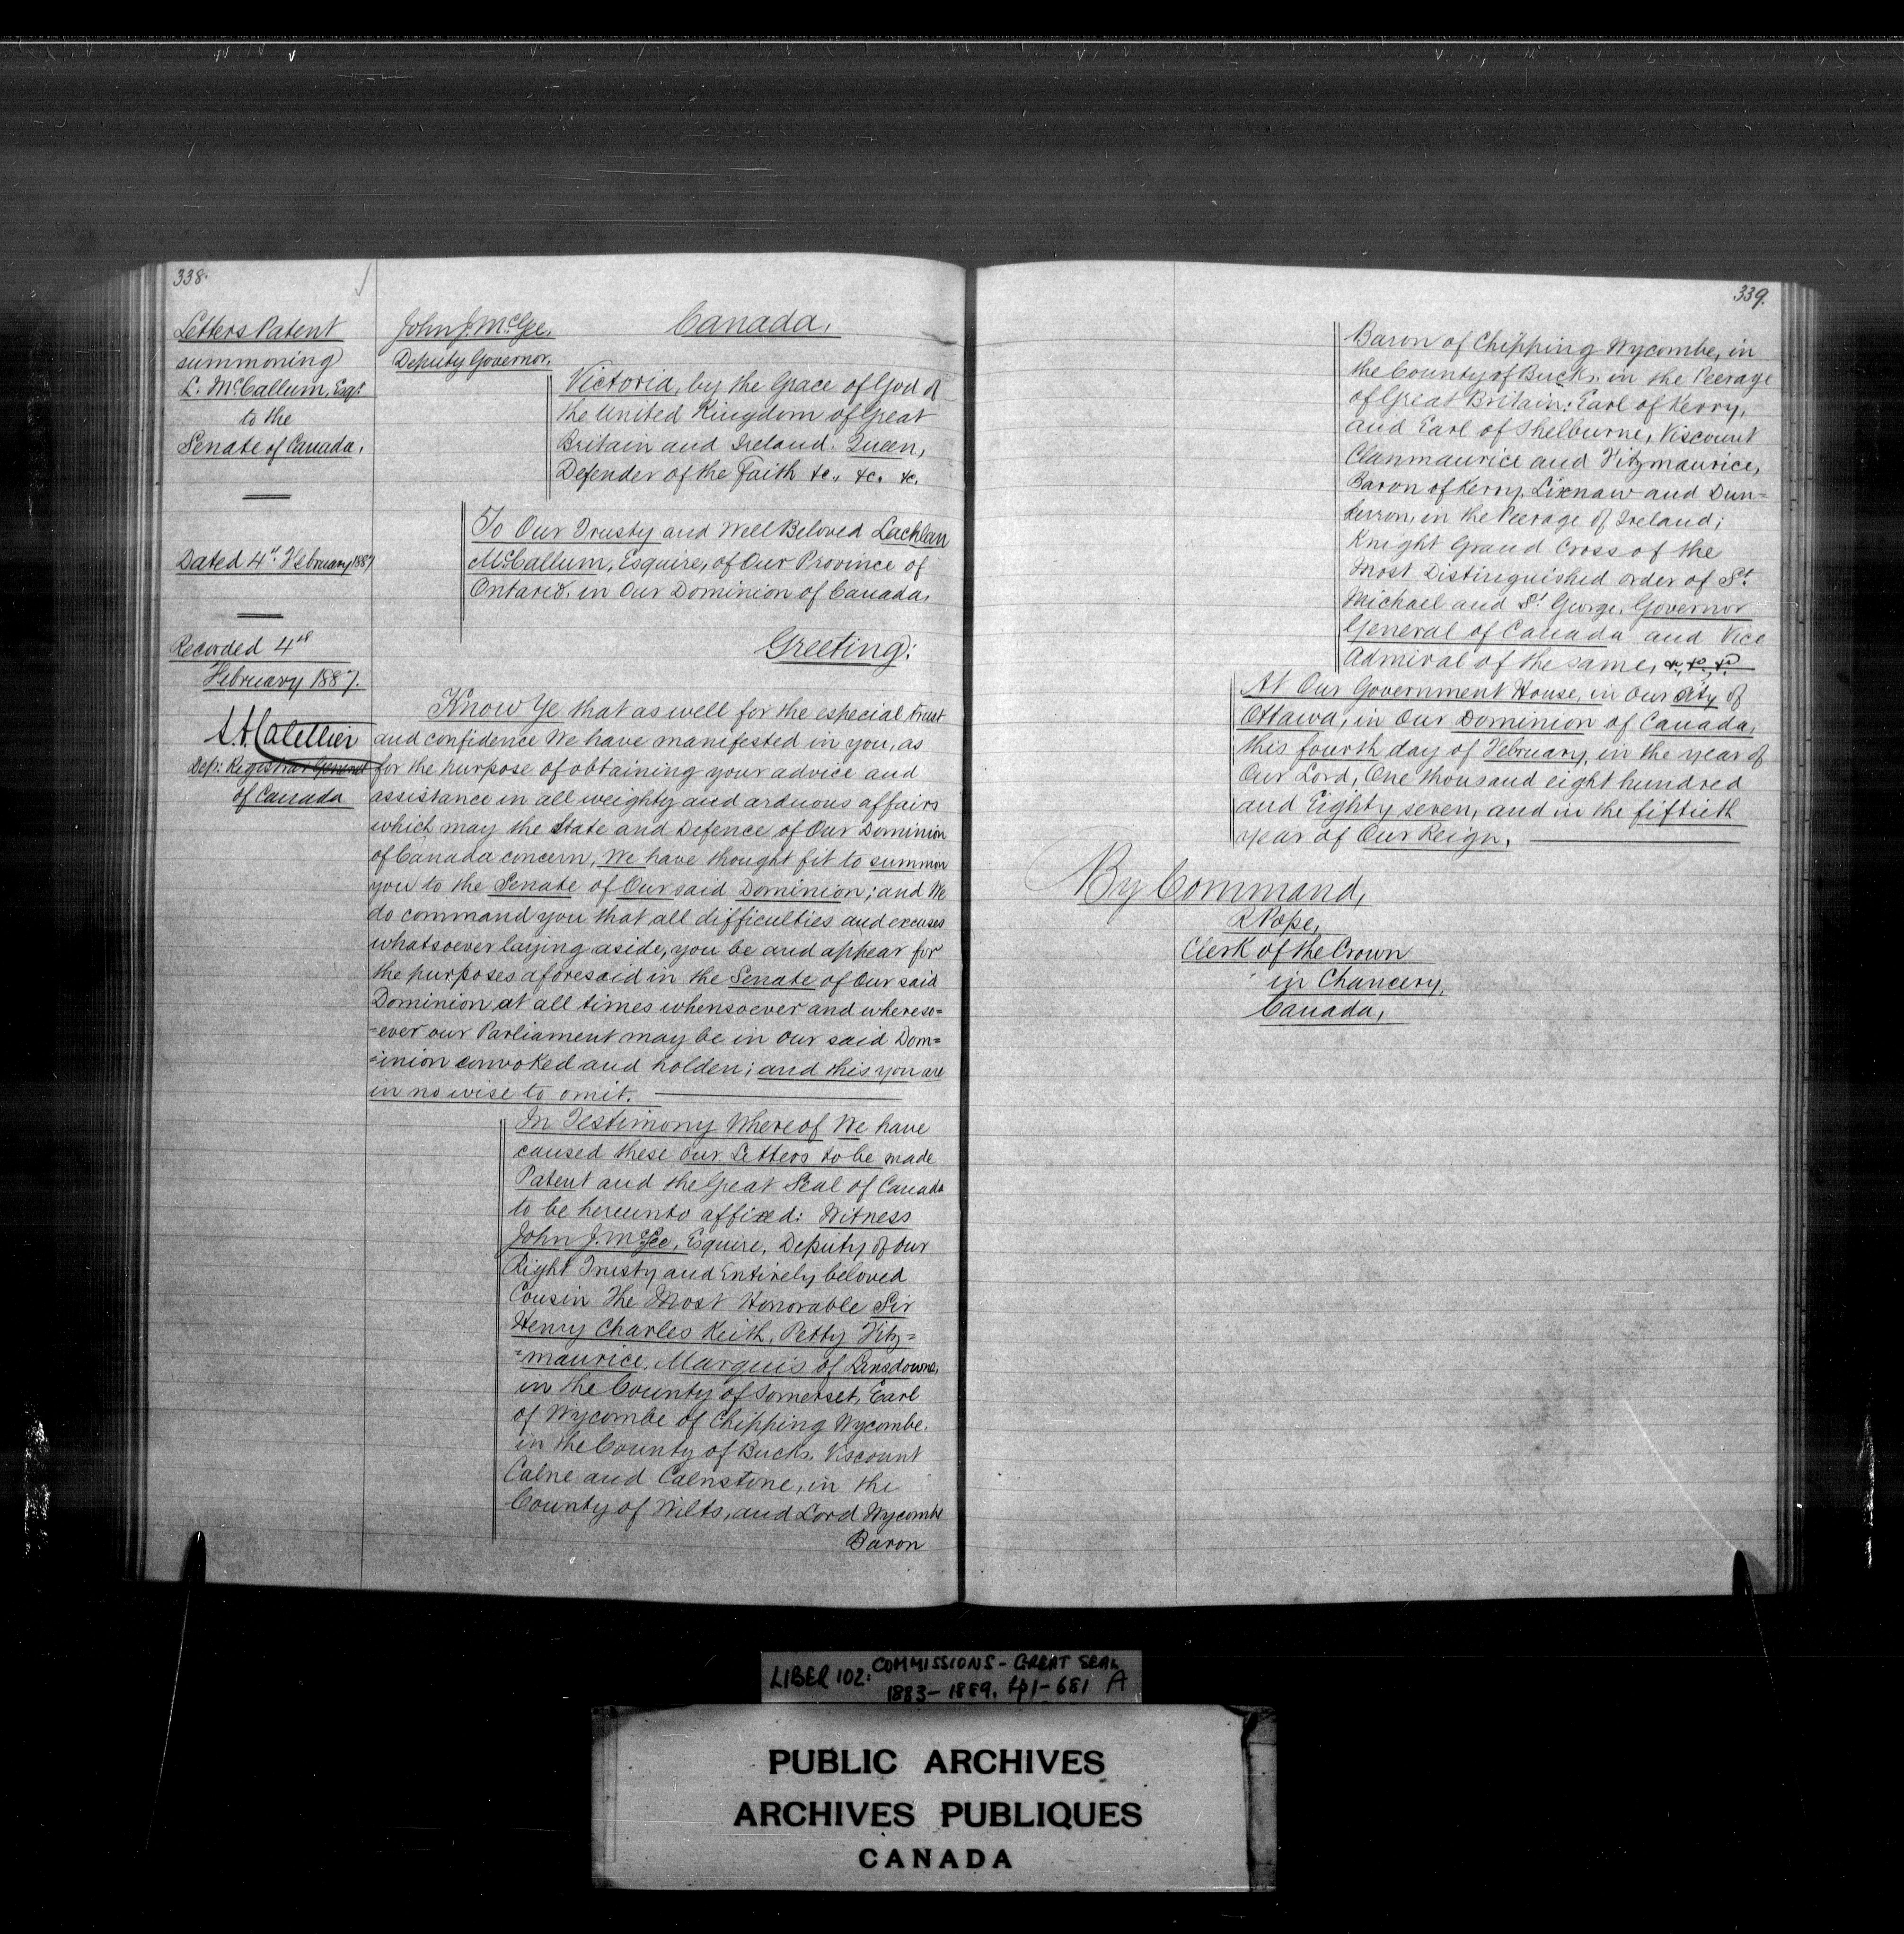 338.
Letters Patent
summoning
L. McCallum, Esqr.
to the
Senate of Canada.
Dated 4th February 1887
Recorded 4th
February 1887.
Dep: Registrar General
of Canada
John J. McGee.
Deputy Governor.
Canada.
Victoria, by the Grace of God of
the United Kingdom of Great
Britain and Ireland. Queen,
Defender of the Faith &c., &c. &c.
To Our Trusty and Well Beloved Lachlan
McCallum, Esquire, of Our Province of
Ontario, in Our Dominion of Canada,
Greeting:
Know Ye that as well for the especial trust
and confidence We have manifested in you, as
for the purpose of obtaining your advice and
assistance in all weighty and arduous affairs
which may the State and Defence of Our Dominion
of Canada concern, We have thought fit to summon
you to the Senate of Our said Dominion; and We
do command you that all difficulties and excuses
whatsoever laying aside, you be and appear for
the purposes aforesaid in the Senate of Our said
Dominion at all times whensoever and whereso=
=ever our Parliament may be in our said Dom=
=inion convoked and holden; and this you are
in no wise to omit.
In Testimony Whereof We have
caused these Our Letters to be made
Patent and the Great Seal of Canada
to be hereunto affixed: Witness
John J. McGee, Esquire, Deputy of Our
Right Trusty and Entirely beloved
Cousin The Most Honorable Sir
Henry Charles Keith, Petty Fitz=
=maurice, Marquis of Lansdowne,
in the County of Somerset, Earl
of Wycombe of Chipping Wycombe.
in the County of Bucks, Viscount
Calne and Calnstone, in the
County of Wilts, and Lord Wycombe
Baron
339.
Baron of Chipping Wycombe, in
the County of Bucks, in the Peerage
of Great Britain: Earl of Kerry,
and Earl of Shelburne, Viscount
Clanmaurice and Fitzmaurice,
Baron of Kerry, Lixnaw and Dun=
kerron, in the Peerage of Ireland;
Knight Grand Cross of the
Most Distinguished Order of St.
Michael and St George, Governor
General of Canada and Vice
Admiral of the same, &c, &c, &c
At Our Government House, in Our City of
Ottawa, in Our Dominion of Canada,
this fourth day of February, in the year of
Our Lord, One thousand eight hundred
and Eighty seven, and in the fiftieth
year of Our Reign.
By Command,
R Pope,
Clerk of the Crown
in Chancery,
Canada,
LIBER 102: COMMISSIONS - GREAT SEAL
1883 - 1889. pp 1 - 681 A
PUBLIC ARCHIVES
ARCHIVES PUBLIQUES
CANADA